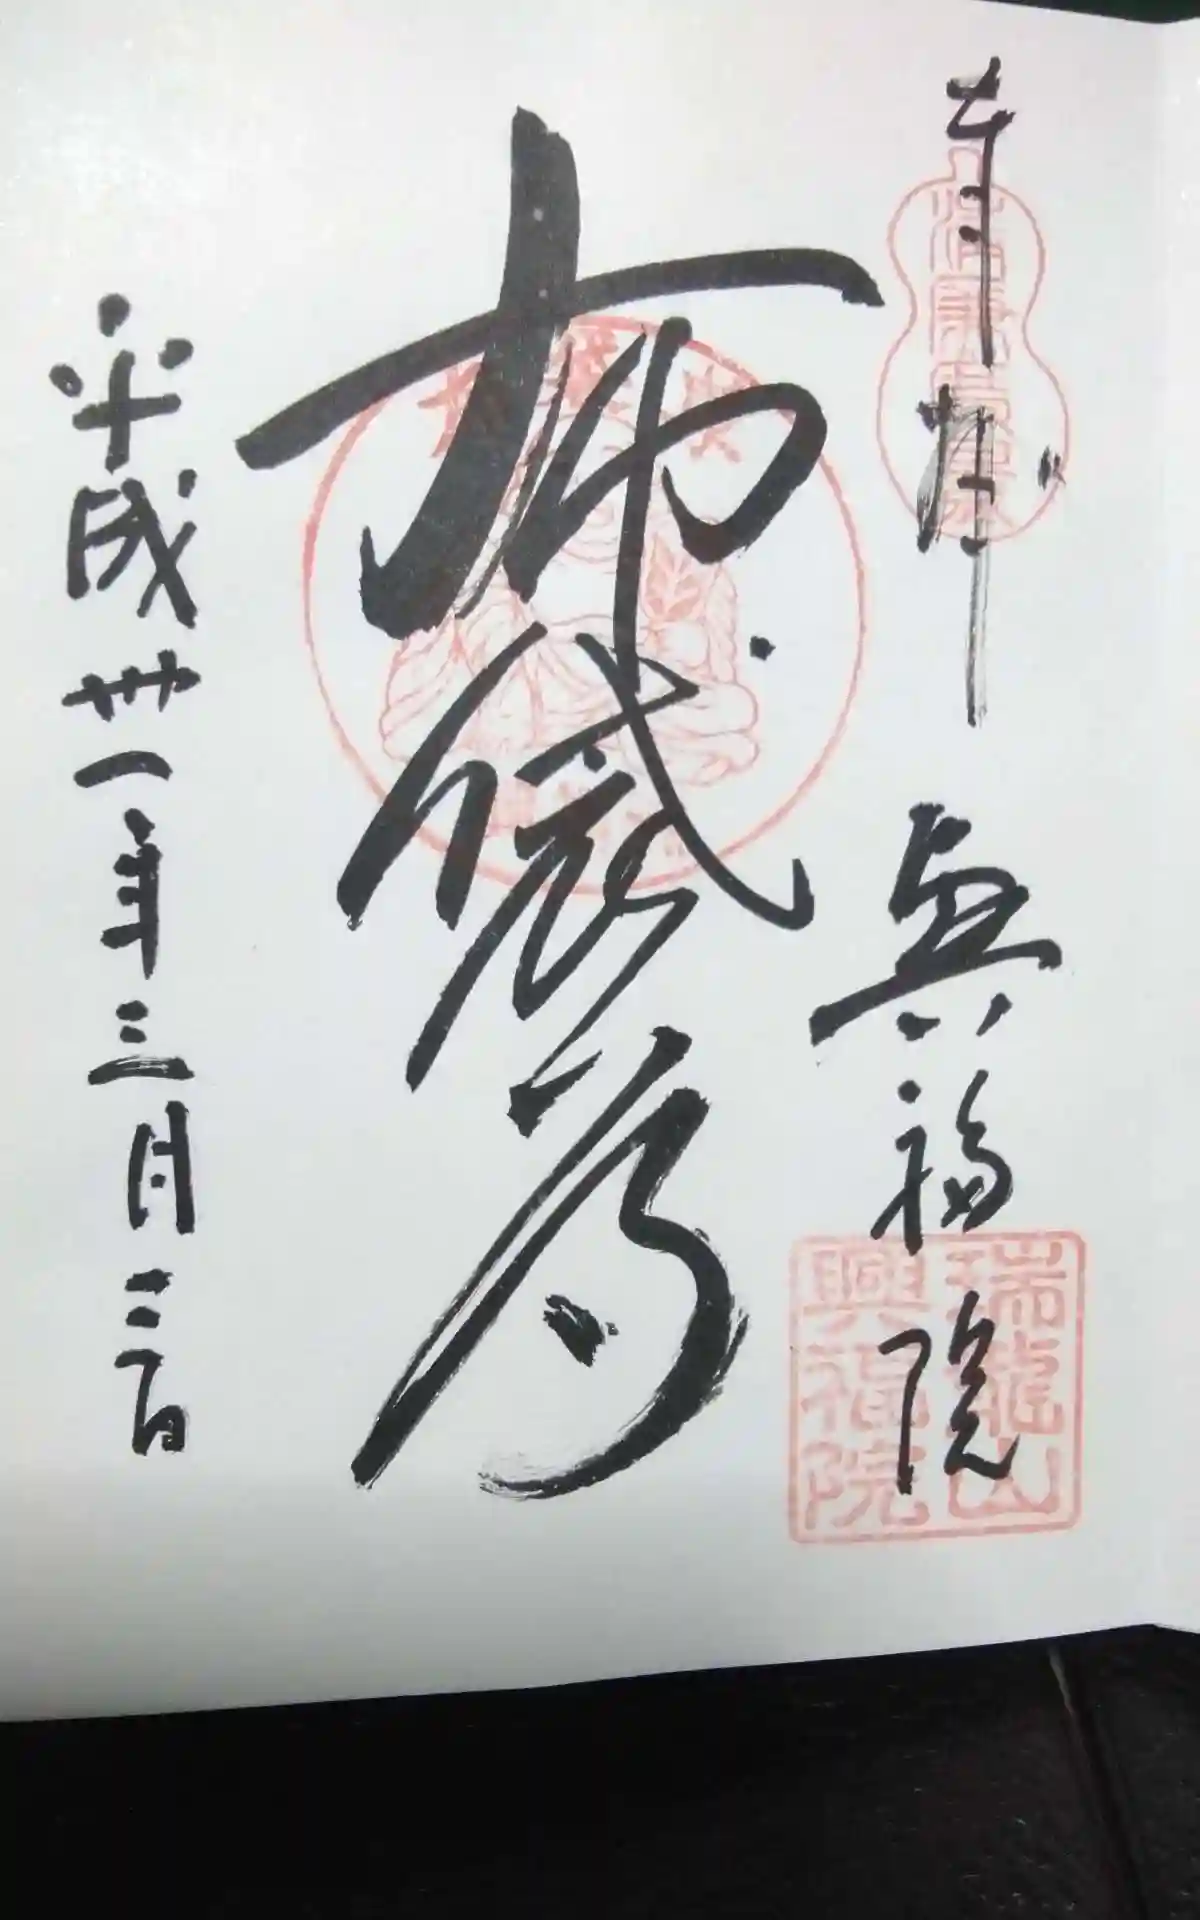 奉拝
興福院
瑞龍山
興福院
布袋尊
平成卅一年三月三日